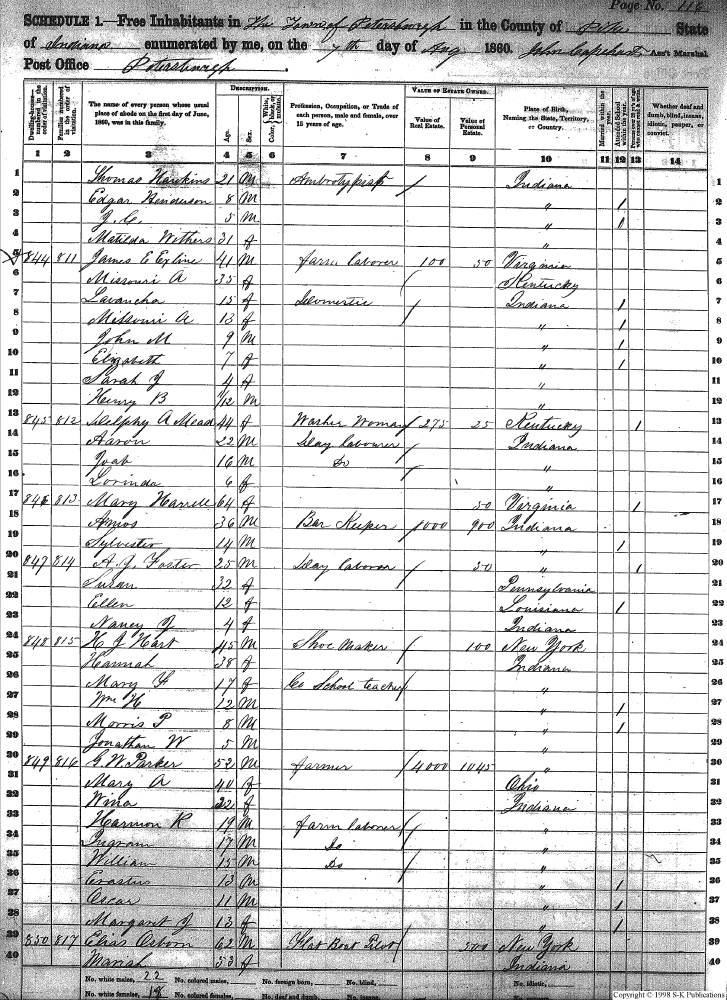 Page No. 116
SCHEDULE 1.—Free Inhabitants in The Town of Petersburgh in the County of Pike State
of Indiana enumerated by me, on the 7th day of Aug 1860. John Capehart Ass't Marshal.
Post Office Petersburgh.
Dwelling-houses—numbered in the order of visitation.
Families numbered in the order of visitation.
The name of every person whose usual place of abode on the first day of June, 1860, was in this family.
DESCRIPTION.
Age.
Sex.
Color, White, black, or mulatto.
Profession, Occupation, or Trade of each person, male and female, over 15 years of age.
VALUE OF ESTATE OWNED.
Value of Real Estate.
Value of Personal Estate.
Place of Birth, Naming the State, Territory, or Country.
Married within the year.
Attended School within the year.
Whether deaf and dumb, blind, insane, idiotic, pauper, or convict.
1 2 3 4 5 6 7 8 9 10 11 12 13 14
1 Thomas Hawkins 21 M Ambrotypist / Indiana 1
2 Edgar Henderson 8 M " / 2
3 J. C. 5 M " / 3
4 Matilda Withers 31 f " 4
5 844 811 James E Exline 41 M farm laborer 100 50 Virginia 5
6 Missouri A 35 f Kentucky 6
7 Lavancha 15 f Domestic Indiana / 7
8 Missouri A 13 f " / 8
9 John M 9 M " / 9
10 Elizabeth 7 f " / 10
11 Sarah J 4 f " 11
12 Henry B /12 M " 12
13 845 812 Delphy A Mead 44 f Washer Woman 275 25 Kentucky / 13
14 Aaron 22 M Day labourer Indiana 14
15 Joab 16 M Do " 15
16 Lorinda 6 f " 16
17 846 813 Mary Harrell 64 f 50 Virginia / 17
18 Amos 36 M Bar Keeper 1000 900 Indiana 18
19 Sylvester 14 M " / 19
20 847 814 A. J. Foster 25 M Day laborer 30 " / 20
21 Susan 32 f Pennsylvania 21
22 Ellen 12 f Louisiana / 22
23 Nancy J 4 f Indiana 23
24 848 815 H J Hart 45 M Shoe Maker 100 New York 24
25 Hannah 38 f Indiana 25
26 Mary F 17 f Co School teacher " 26
27 Wm H 12 M " / 27
28 Morris P 8 M " / 28
29 Jonathan W 5 M " 29
30 849 816 G. W. Parker 52 M farmer 4000 1045 " 30
31 Mary A 40 f Ohio 31
32 Wina 22 f Indiana 32
33 Harmon R 19 M farm laborer " 33
34 Ingram 17 M Do " 34
35 William 15 M Do " 35
36 Erastus 13 M " / 36
37 Oscar 11 M " / 37
38 Margaret J 13 f " / 38
39 850 817 Elias Osborn 62 M Flat Boat Pilot 500 New York 39
40 Mariah 53 f Indiana 40
No. white males, 22 No. colored males, No. foreign born, No. blind,
No. white females, 18 No. colored females, No. deaf and dumb, No. insane, No. idiotic,
Copyright © 1998 S-K Publications